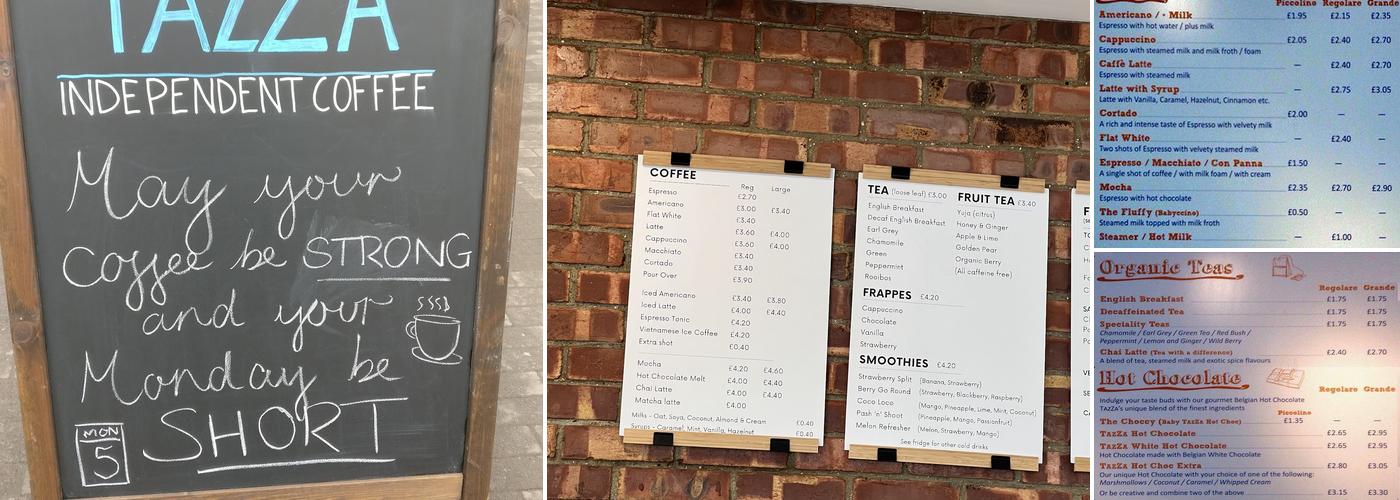 TAZZA
INDEPENDENT COFFEE
May your
Coffee be STRONG
and your
Monday be
SHORT
MON
5
COFFEE
Reg Large
Espresso £2.70
Americano £3.00 £3.40
Flat White £3.40
Latte £3.60 £4.00
Cappuccino £3.60 £4.00
Macchiato £3.40
Cortado £3.40
Pour Over £3.90
Iced Americano £3.40 £3.80
Iced Latte £4.00 £4.40
Espresso Tonic £4.20
Vietnamese Ice Coffee £4.20
Extra shot £0.40
Mocha £4.20 £4.60
Hot Chocolate Melt £4.00 £4.40
Chai Latte £4.00 £4.40
Matcha latte £4.00
Milks - Oat, Soya, Coconut, Almond & Cream £0.40
Syrups - Caramel, Mint, Vanilla, Hazelnut £0.40
TEA (loose leaf) £3.00
English Breakfast
Decaf English Breakfast
Earl Grey
Chamomile
Green
Peppermint
Rooibos
FRUIT TEA £3.40
Yuja (citrus)
Honey & Ginger
Apple & Lime
Golden Pear
Organic Berry
(All caffeine free)
FRAPPES £4.20
Cappuccino
Chocolate
Vanilla
Strawberry
SMOOTHIES £4.20
Strawberry Split (Banana, Strawberry)
Berry Go Round (Strawberry, Blackberry, Raspberry)
Coco Loco (Mango, Pineapple, Lime, Mint, Coconut)
Pash 'n' Shoot (Pineapple, Mango, Passionfruit)
Melon Refresher (Melon, Strawberry, Mango)
See fridge for other cold drinks
Piccolino Regolare Grande
Americano / + Milk £1.95 £2.15 £2.35
Espresso with hot water / plus milk
Cappuccino £2.05 £2.40 £2.70
Espresso with steamed milk and milk froth / foam
Caffè Latte — £2.40 £2.70
Espresso with steamed milk
Latte with Syrup — £2.75 £3.05
Latte with Vanilla, Caramel, Hazelnut, Cinnamon etc.
Cortado £2.00 — —
A rich and intense taste of Espresso with velvety milk
Flat White — £2.40 —
Two shots of Espresso with velvety steamed milk
Espresso / Macchiato / Con Panna £1.50 — —
A single shot of coffee / with milk foam / with cream
Mocha £2.35 £2.70 £2.90
Espresso with hot chocolate
The Fluffy (Babyccino) £0.50 — —
Steamed milk topped with milk froth
Steamer / Hot Milk — £1.00 —
Organic Teas
Regolare Grande
English Breakfast £1.75 £1.75
Decaffeinated Tea £1.75 £1.75
Speciality Teas £1.75 £1.75
Chamomile / Earl Grey / Green Tea / Red Bush /
Peppermint / Lemon and Ginger / Wild Berry
Chai Latte (Tea with a difference) £2.40 £2.70
A blend of tea, steamed milk and exotic spice flavours
Hot Chocolate
Regolare Grande
Indulge your taste buds with our gourmet Belgian Hot Chocolate
TAZZA's unique blend of the finest ingredients
Piccolino
The Choccy (Baby TAZZA Hot Choc) £1.35 — —
TAZZA Hot Chocolate £2.65 £2.95
TAZZA White Hot Chocolate £2.65 £2.95
Hot Chocolate made with Belgian White Chocolate
TAZZA Hot Choc Extra £2.80 £3.05
Our unique Hot Chocolate with your choice of one of the following:
Marshmallows / Coconut / Caramel / Whipped Cream
Or be creative and combine two of the above £3.15 £3.30